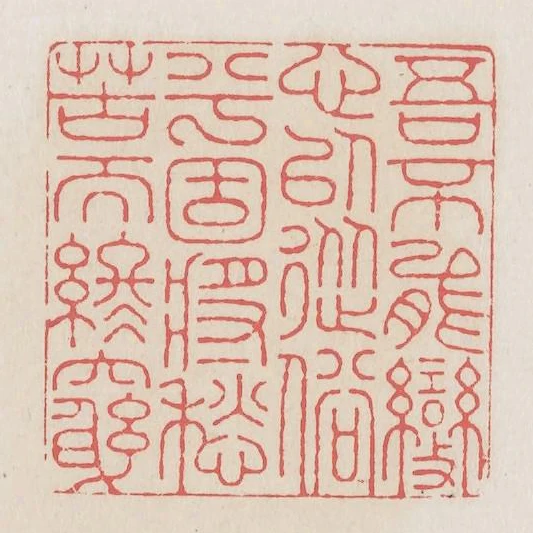 吾不能變
心以從俗
兮固將愁
苦而終窮